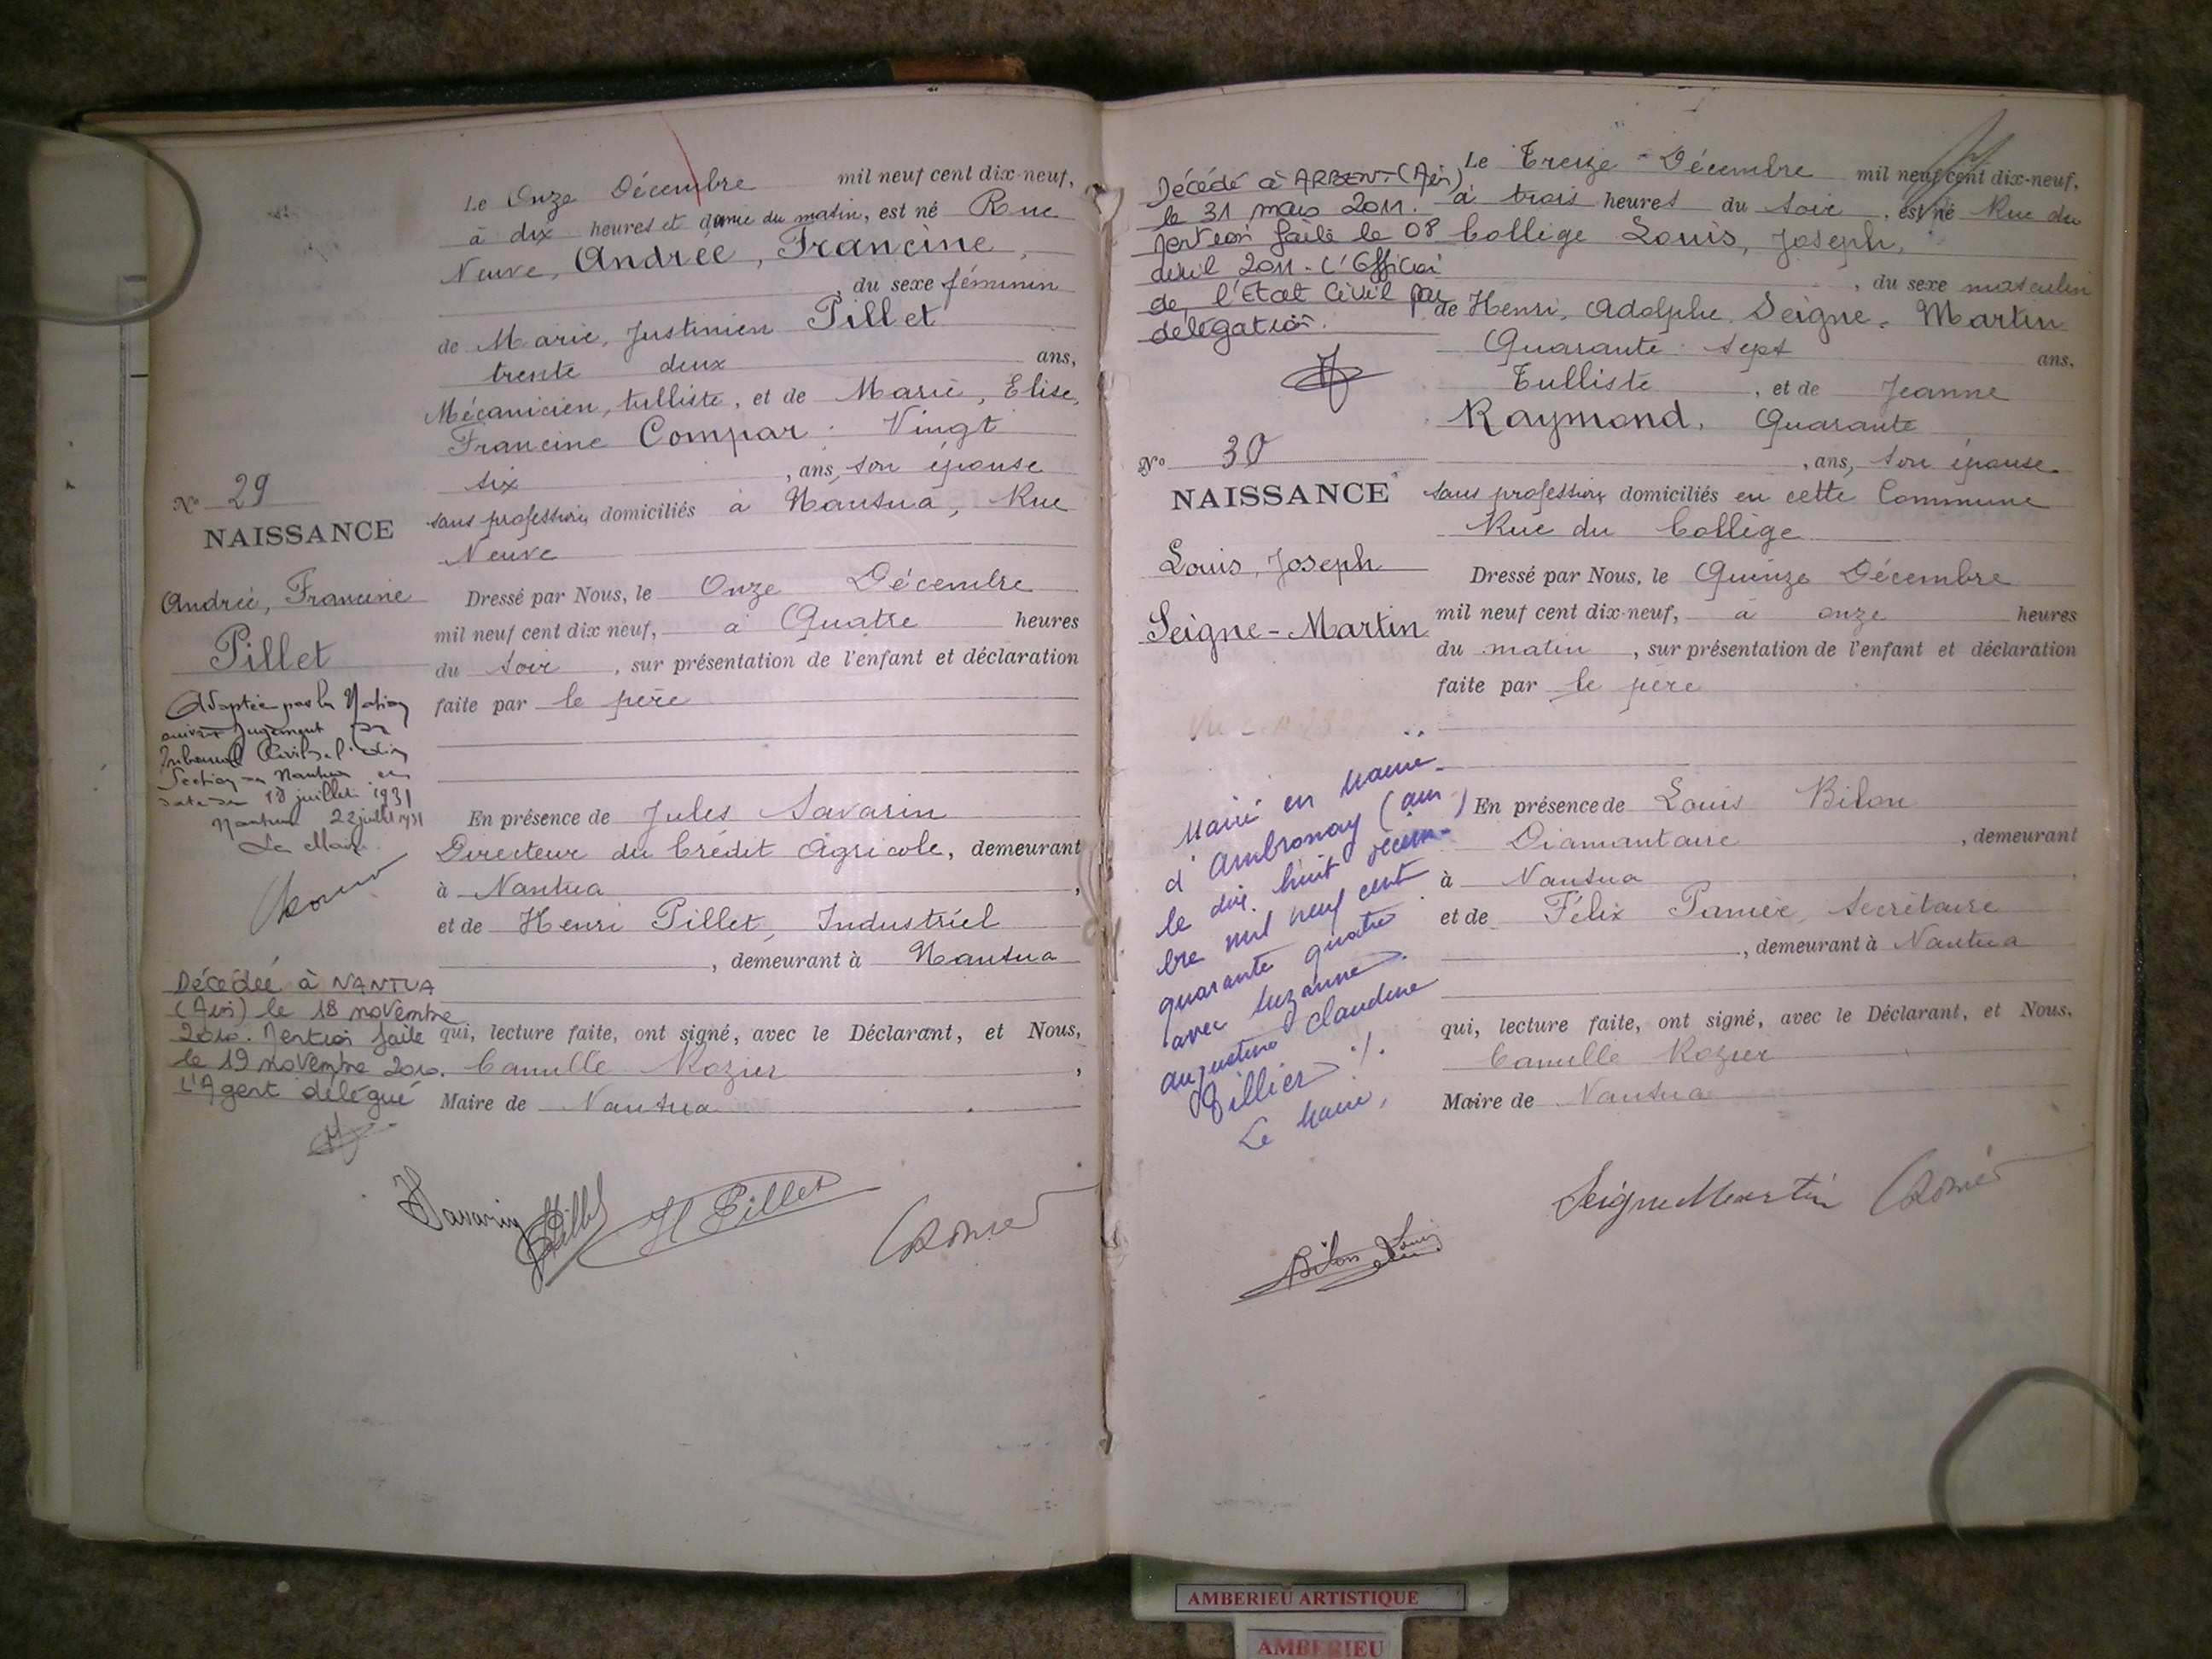 Le Onze Décembre mil neuf cent dix-neuf,
à dix heures et demie du matin, est né Rue
Neuve, Andrée, Francine,
, du sexe féminin
de Marie, Justinien Pillet
trente deux ans,
Mécanicien, tulliste, et de Marie, Elise,
Francine Compar. Vingt
six , ans, son épouse
sans profession, domiciliés à Nantua, Rue
Neuve
Nº 29
NAISSANCE
Andrée, Francine
Pillet
Adoptée par la Nation
suivant Jugement du
Tribunal Civil de l'Ain
Section de Nantua en
date du 18 juillet 1931
Nantua 22 juillet 1931
Le Maire
Décédée à NANTUA
(Ain) le 18 novembre
2010. Mention faite
le 19 novembre 2010.
L'Agent délégué
Dressé par Nous, le Onze Décembre
mil neuf cent dix neuf, à Quatre heures
du soir , sur présentation de l'enfant et déclaration
faite par le père
En présence de Jules Savarin
Directeur du Crédit Agricole, demeurant
à Nantua ,
et de Henri Pillet, Industriel
, demeurant à Nantua
qui, lecture faite, ont signé, avec le Déclarant, et Nous,
Camille Rozier ,
Maire de Nantua
Savarin Pillet H Pillet CRozier
Décédé à ARBENT (Ain)
le 31 mars 2011.
Mention faite le 08
avril 2011 - L'Officier
de l'Etat Civil par
délégation.
Nº 30
NAISSANCE
Louis, Joseph
Seigne-Martin
Marié en mairie
d'Ambronay (Ain)
le dix huit décem-
bre mil neuf cent
quarante quatre
avec Suzanne
Augustine Claudine
Billier ./.
Le Maire,
Le Treize Décembre mil neuf cent dix-neuf,
à trois heures du soir , est né Rue du
Collège Louis, Joseph,
, du sexe masculin
de Henri, Adolphe Seigne-Martin
Quarante sept ans,
Tulliste , et de Jeanne
Raymond, Quarante
, ans, son épouse
sans profession, domiciliés en cette Commune
Rue du Collège
Dressé par Nous, le Quinze Décembre
mil neuf cent dix-neuf, à onze heures
du matin , sur présentation de l'enfant et déclaration
faite par le père
En présence de Louis Bilon
Diamantaire , demeurant
à Nantua
et de Félix , Secrétaire
, demeurant à Nantua
qui, lecture faite, ont signé, avec le Déclarant, et Nous,
Camille Rozier
Maire de Nantua
SeigneMartin CRozier
Bilon Louis
AMBERIEU ARTISTIQUE
AMBERIEU